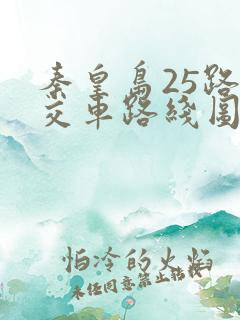 秦皇岛25路
交车路线图
怕冷的火焰
未经同意禁止转载